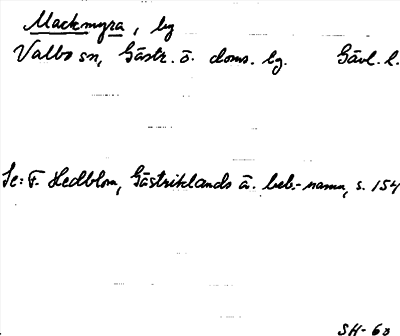 Mackmyra, by
Valbo sn, Gästr. ö. doms. lg. Gävl. l.
Se: F. Hedblom, Gästriklands ä. beb.-namn, s. 154
SH-63